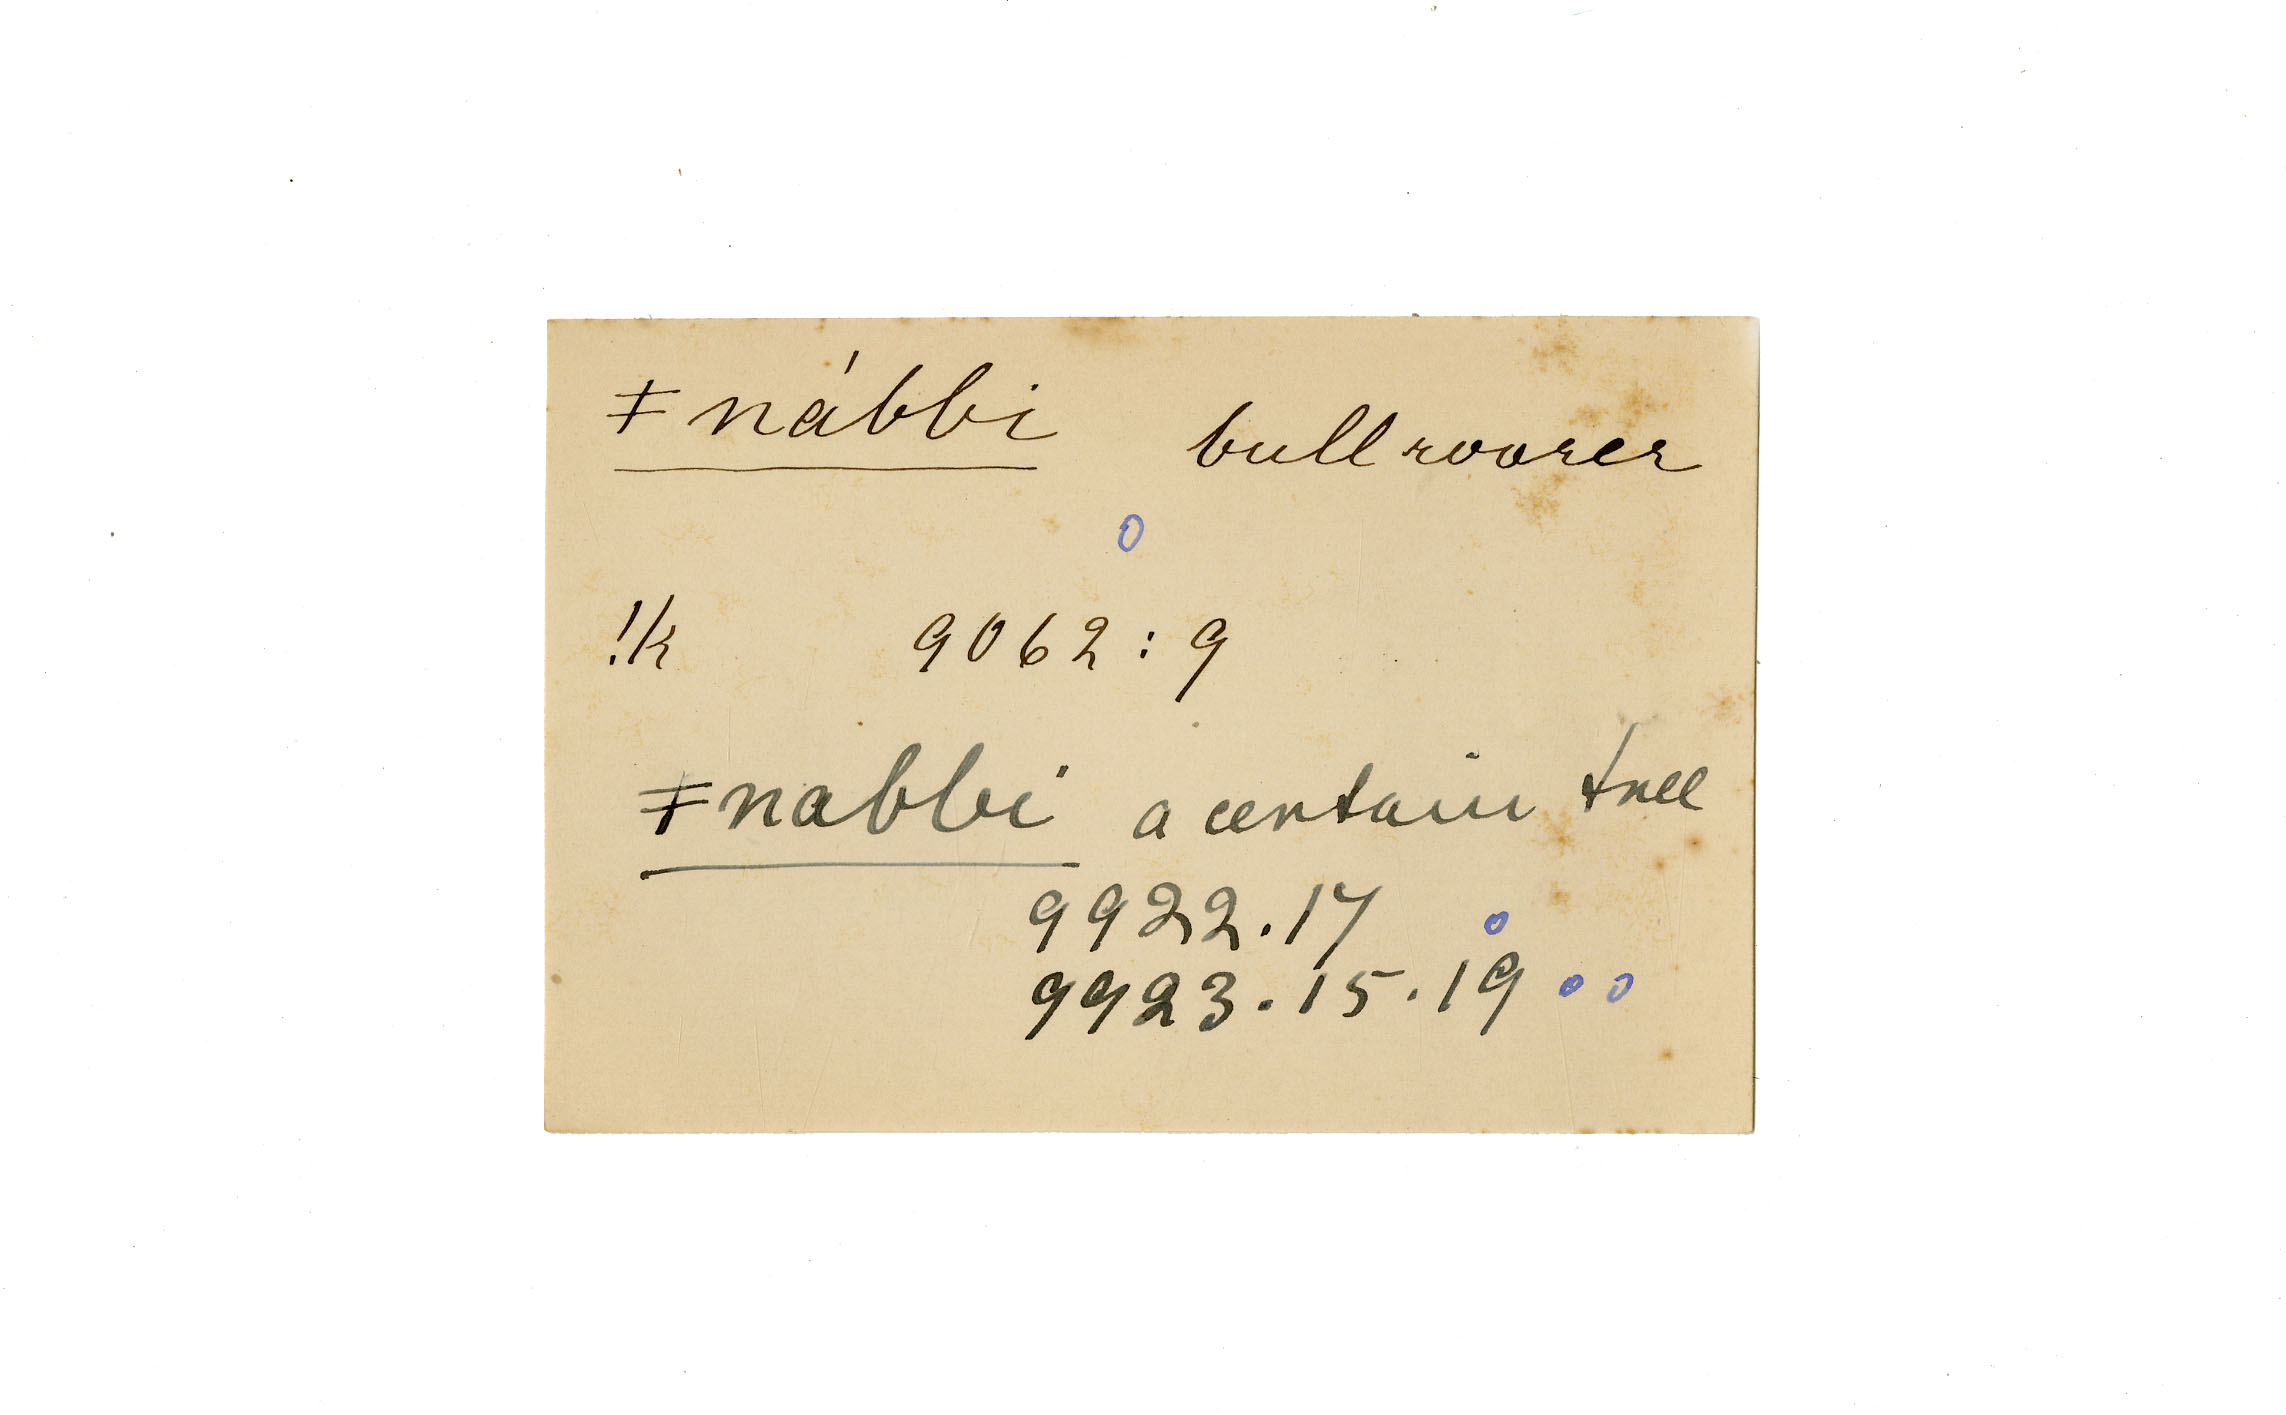 ǂnábbi bullroarer
o
!k 9062:9
ǂnabbi a certain tree
9922.17
9923.15.19 o o o